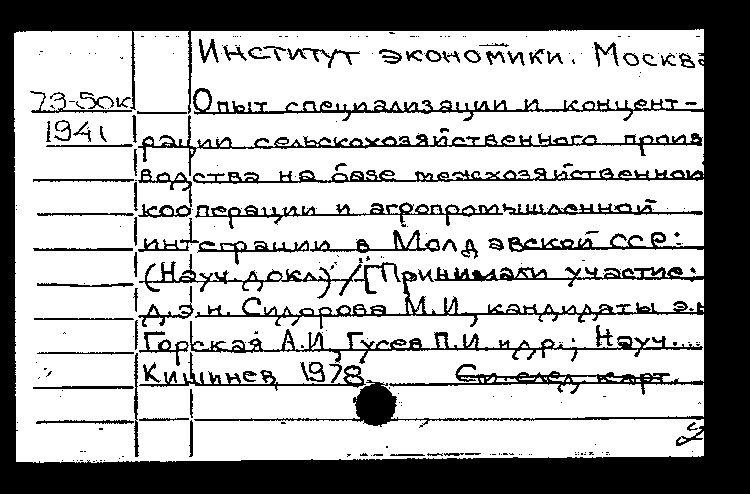 Институт экономики. Москва
79-50к Опыт специализации и концент-
1941 рации сельскохозяйственного произ
водства на базе межхозяйственной
кооперации и агропромышленной
интеграции в Молдавской ССР:
(Науч. докл) / [Принимали участие:
д.э.н. Сидорова М.И., кандидаты э.н
Горская А.И, Гусев П.И. и др.; Науч...
Кишинев, 1978 См. след. карт.